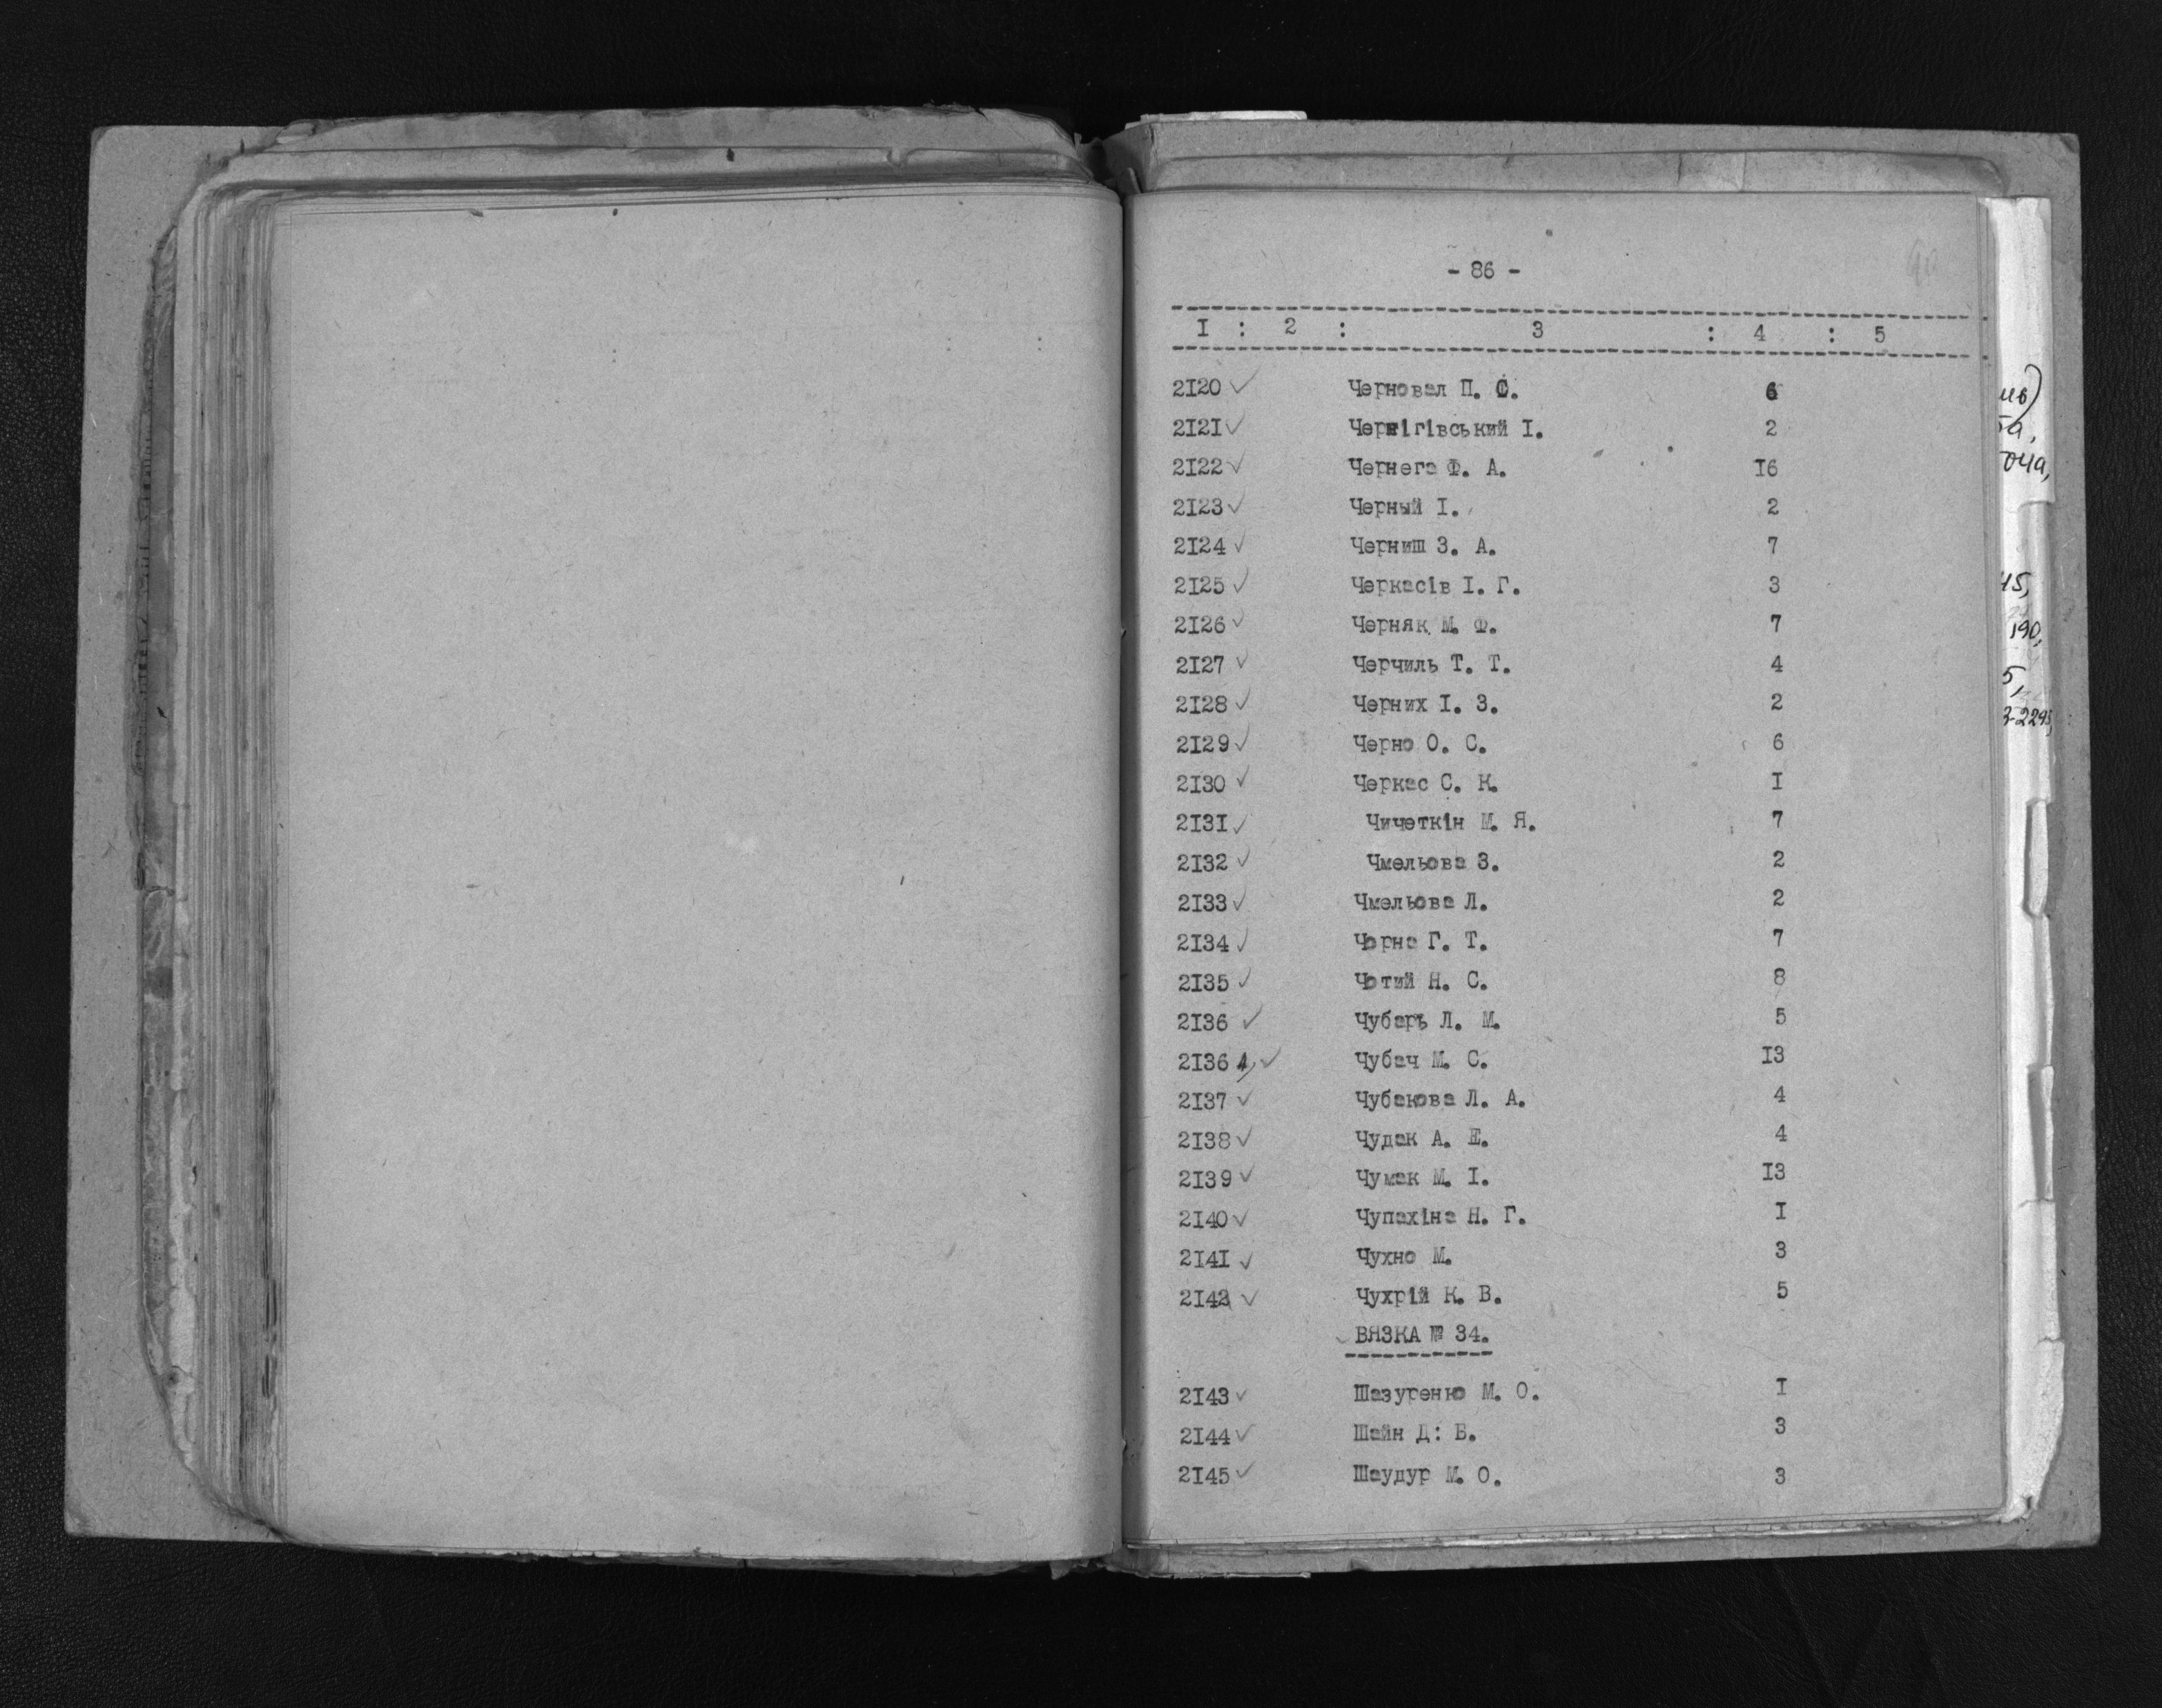 - 86 -
I : 2 : 3 : 4 : 5
2I20 ✓ Черновал П. С. 6
2I2I ✓ Чернігівський І. 2
2I22 ✓ Чернега Ф. А. I6
2I23 ✓ Черный І. 2
2I24 ✓ Черниш З. А. 7
2I25 ✓ Черкасів І. Г. 3
2I26 ✓ Черняк М. Ф. 7
2I27 ✓ Черчиль Т. Т. 4
2I28 ✓ Черних І. З. 2
2I29 ✓ Черно О. С. 6
2I30 ✓ Черкас С. К. I
2I3I ✓ Чичеткін М. Я. 7
2I32 ✓ Чмельова З. 2
2I33 ✓ Чмельова Л. 2
2I34 ✓ Чорна Г. Т. 7
2I35 ✓ Чотий Н. С. 8
2I36 ✓ Чубарь Л. М. 5
2I36 1, ✓ Чубач М. С. I3
2I37 ✓ Чубакова Л. А. 4
2I38 ✓ Чудак А. Е. 4
2I39 ✓ Чумак М. І. I3
2I40 ✓ Чупахіна Н. Г. I
2I4I ✓ Чухно М. 3
2I42 ✓ Чухрій К. В. 5
✓ ВЯЗКА № 34.
2I43 ✓ Шазуренко М. О. I
2I44 ✓ Шайн Д: Б. 3
2I45 ✓ Шаудур М. О. 3
190,
5,
3-2295,